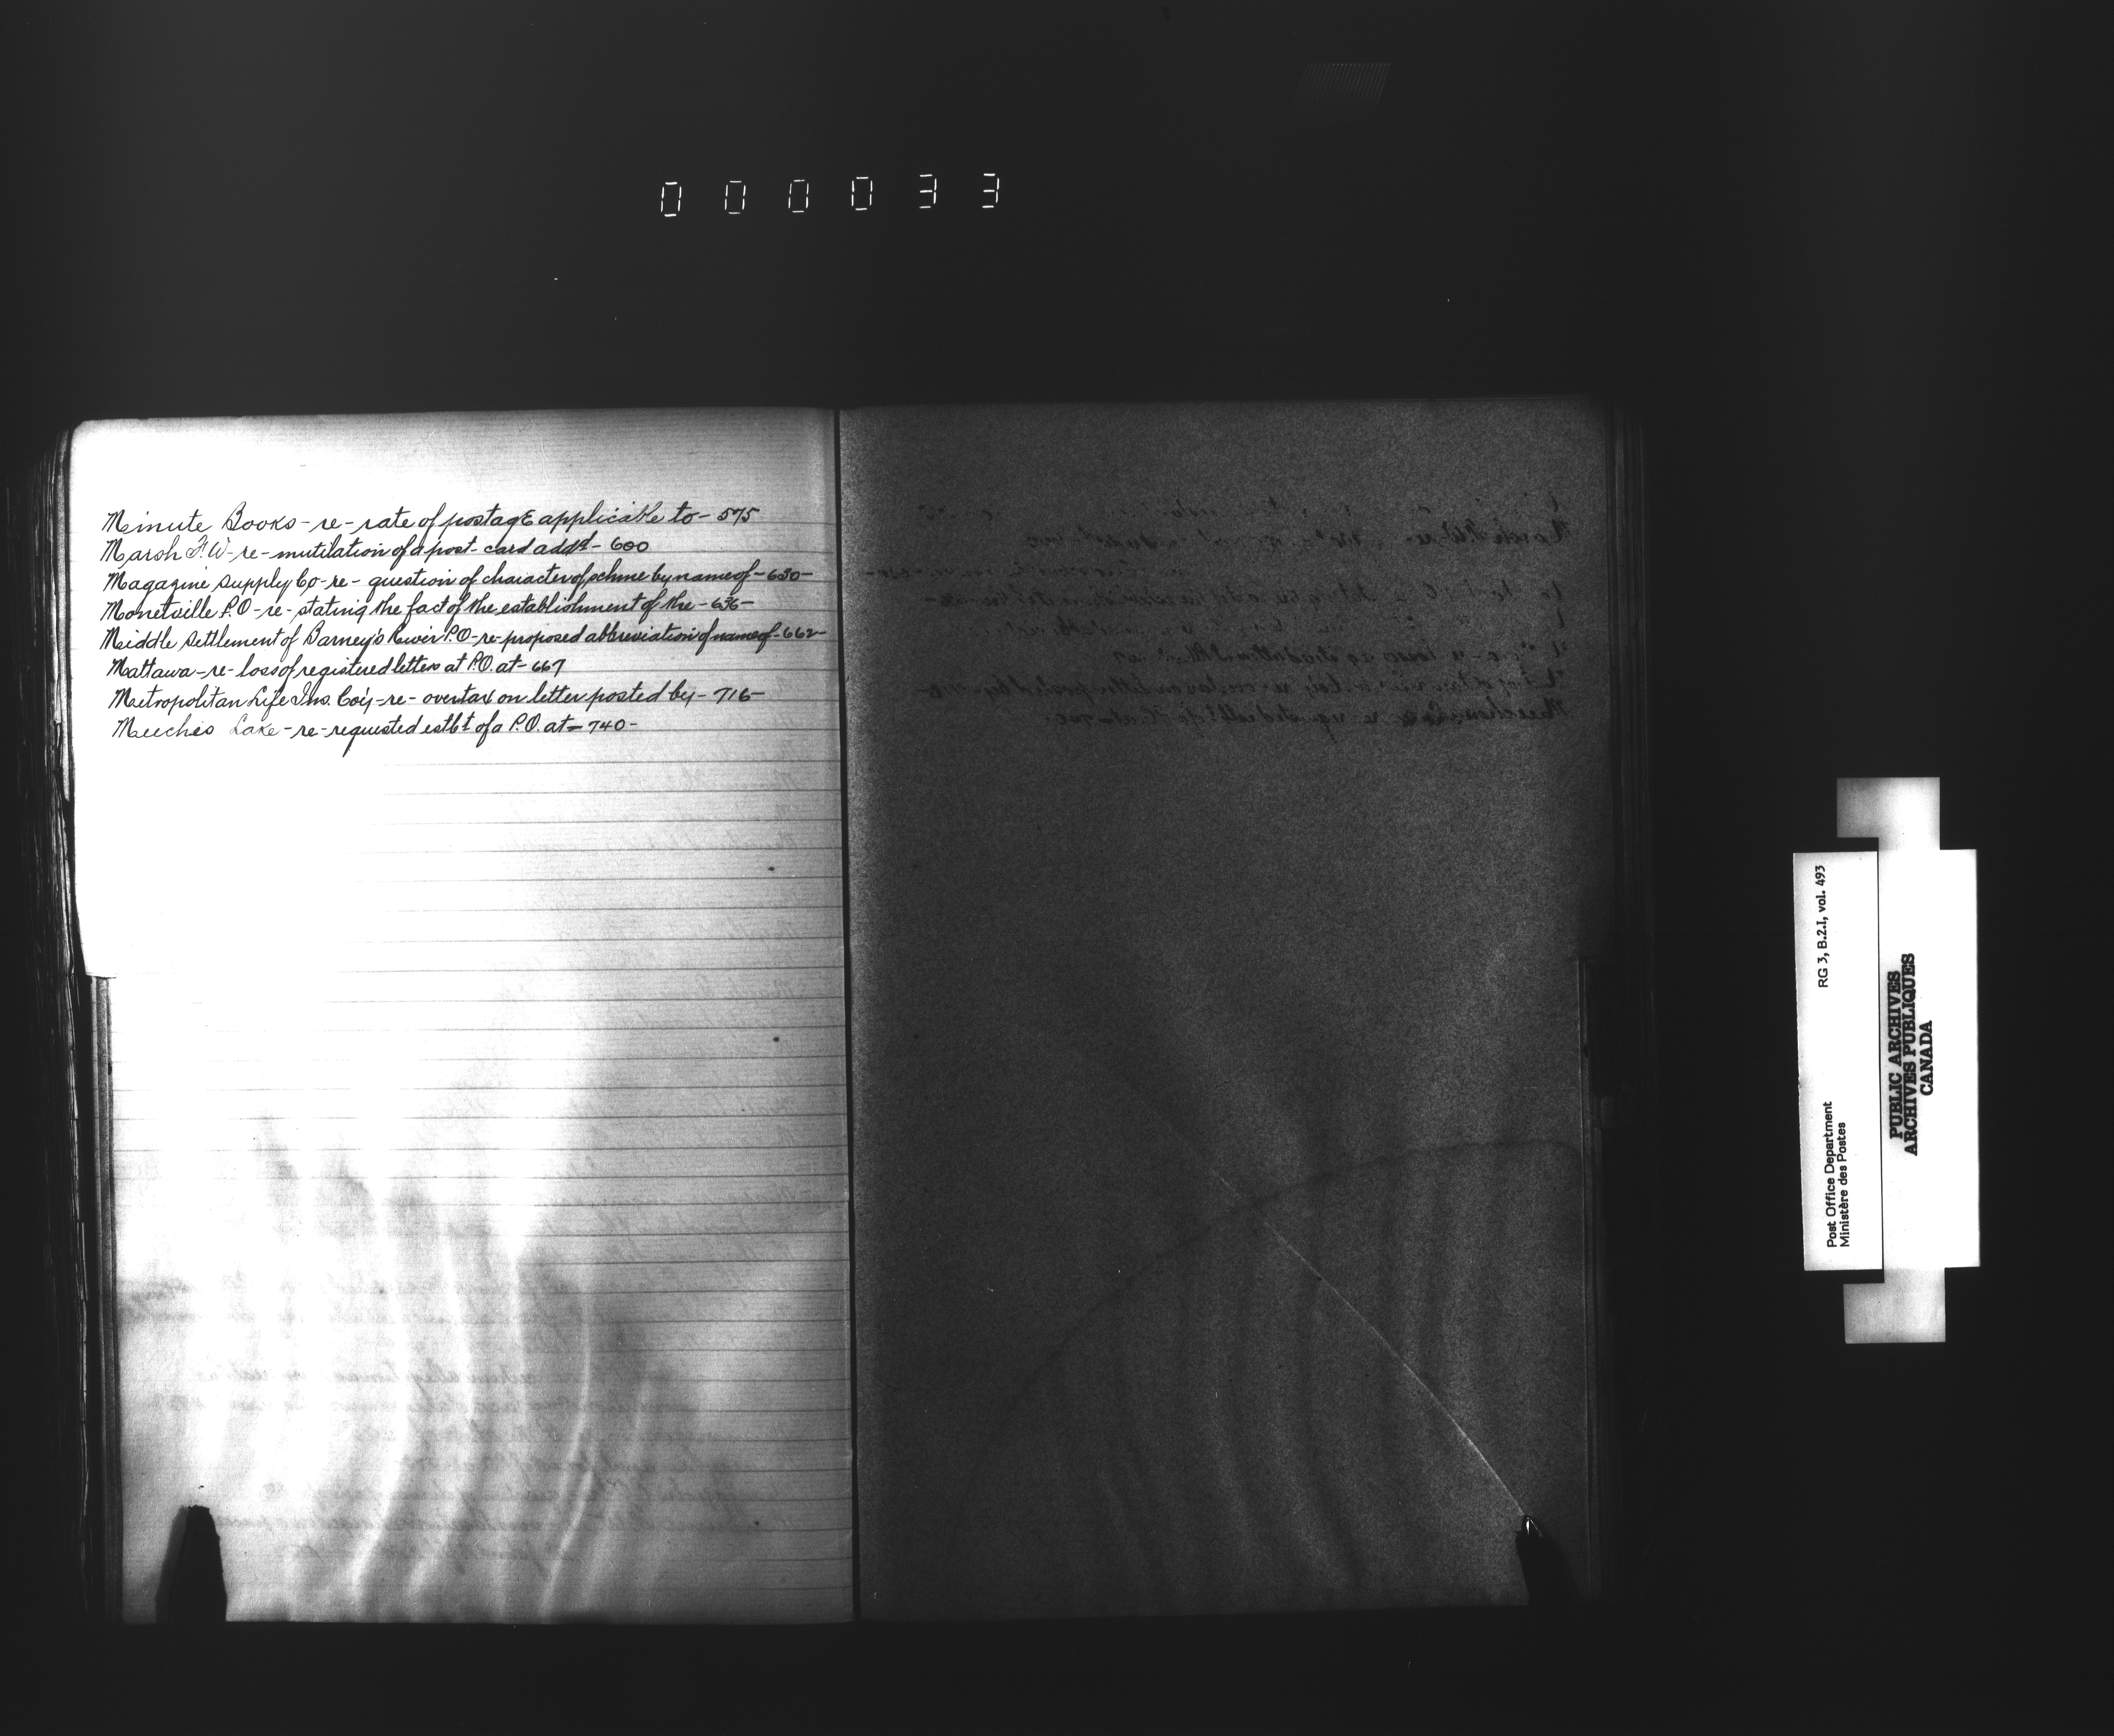 000033
Minute Books - re - rate of postage applicable to - 575
Marsh F. W - re - mutilation of a post-card addd - 600
Magazine Supply Co - re - question of character of schme by name of - 630 -
Monetville P.O - re - stating the fact of the establishment of the - 636 -
Middle Settlement of Barney's River P.O - re - proposed abbreviation of name of - 662 -
Mattawa - re - loss of registered letters at P.O. at - 667
Metropolitan Life Ins. Co'y - re - overtax on letter posted by - 716 -
Meeches Lake - re - requested estbt of a P.O. at - 740 -
RG 3, B.2.I, vol. 493
Post Office Department
Ministère des Postes
PUBLIC ARCHIVES
ARCHIVES PUBLIQUES
CANADA